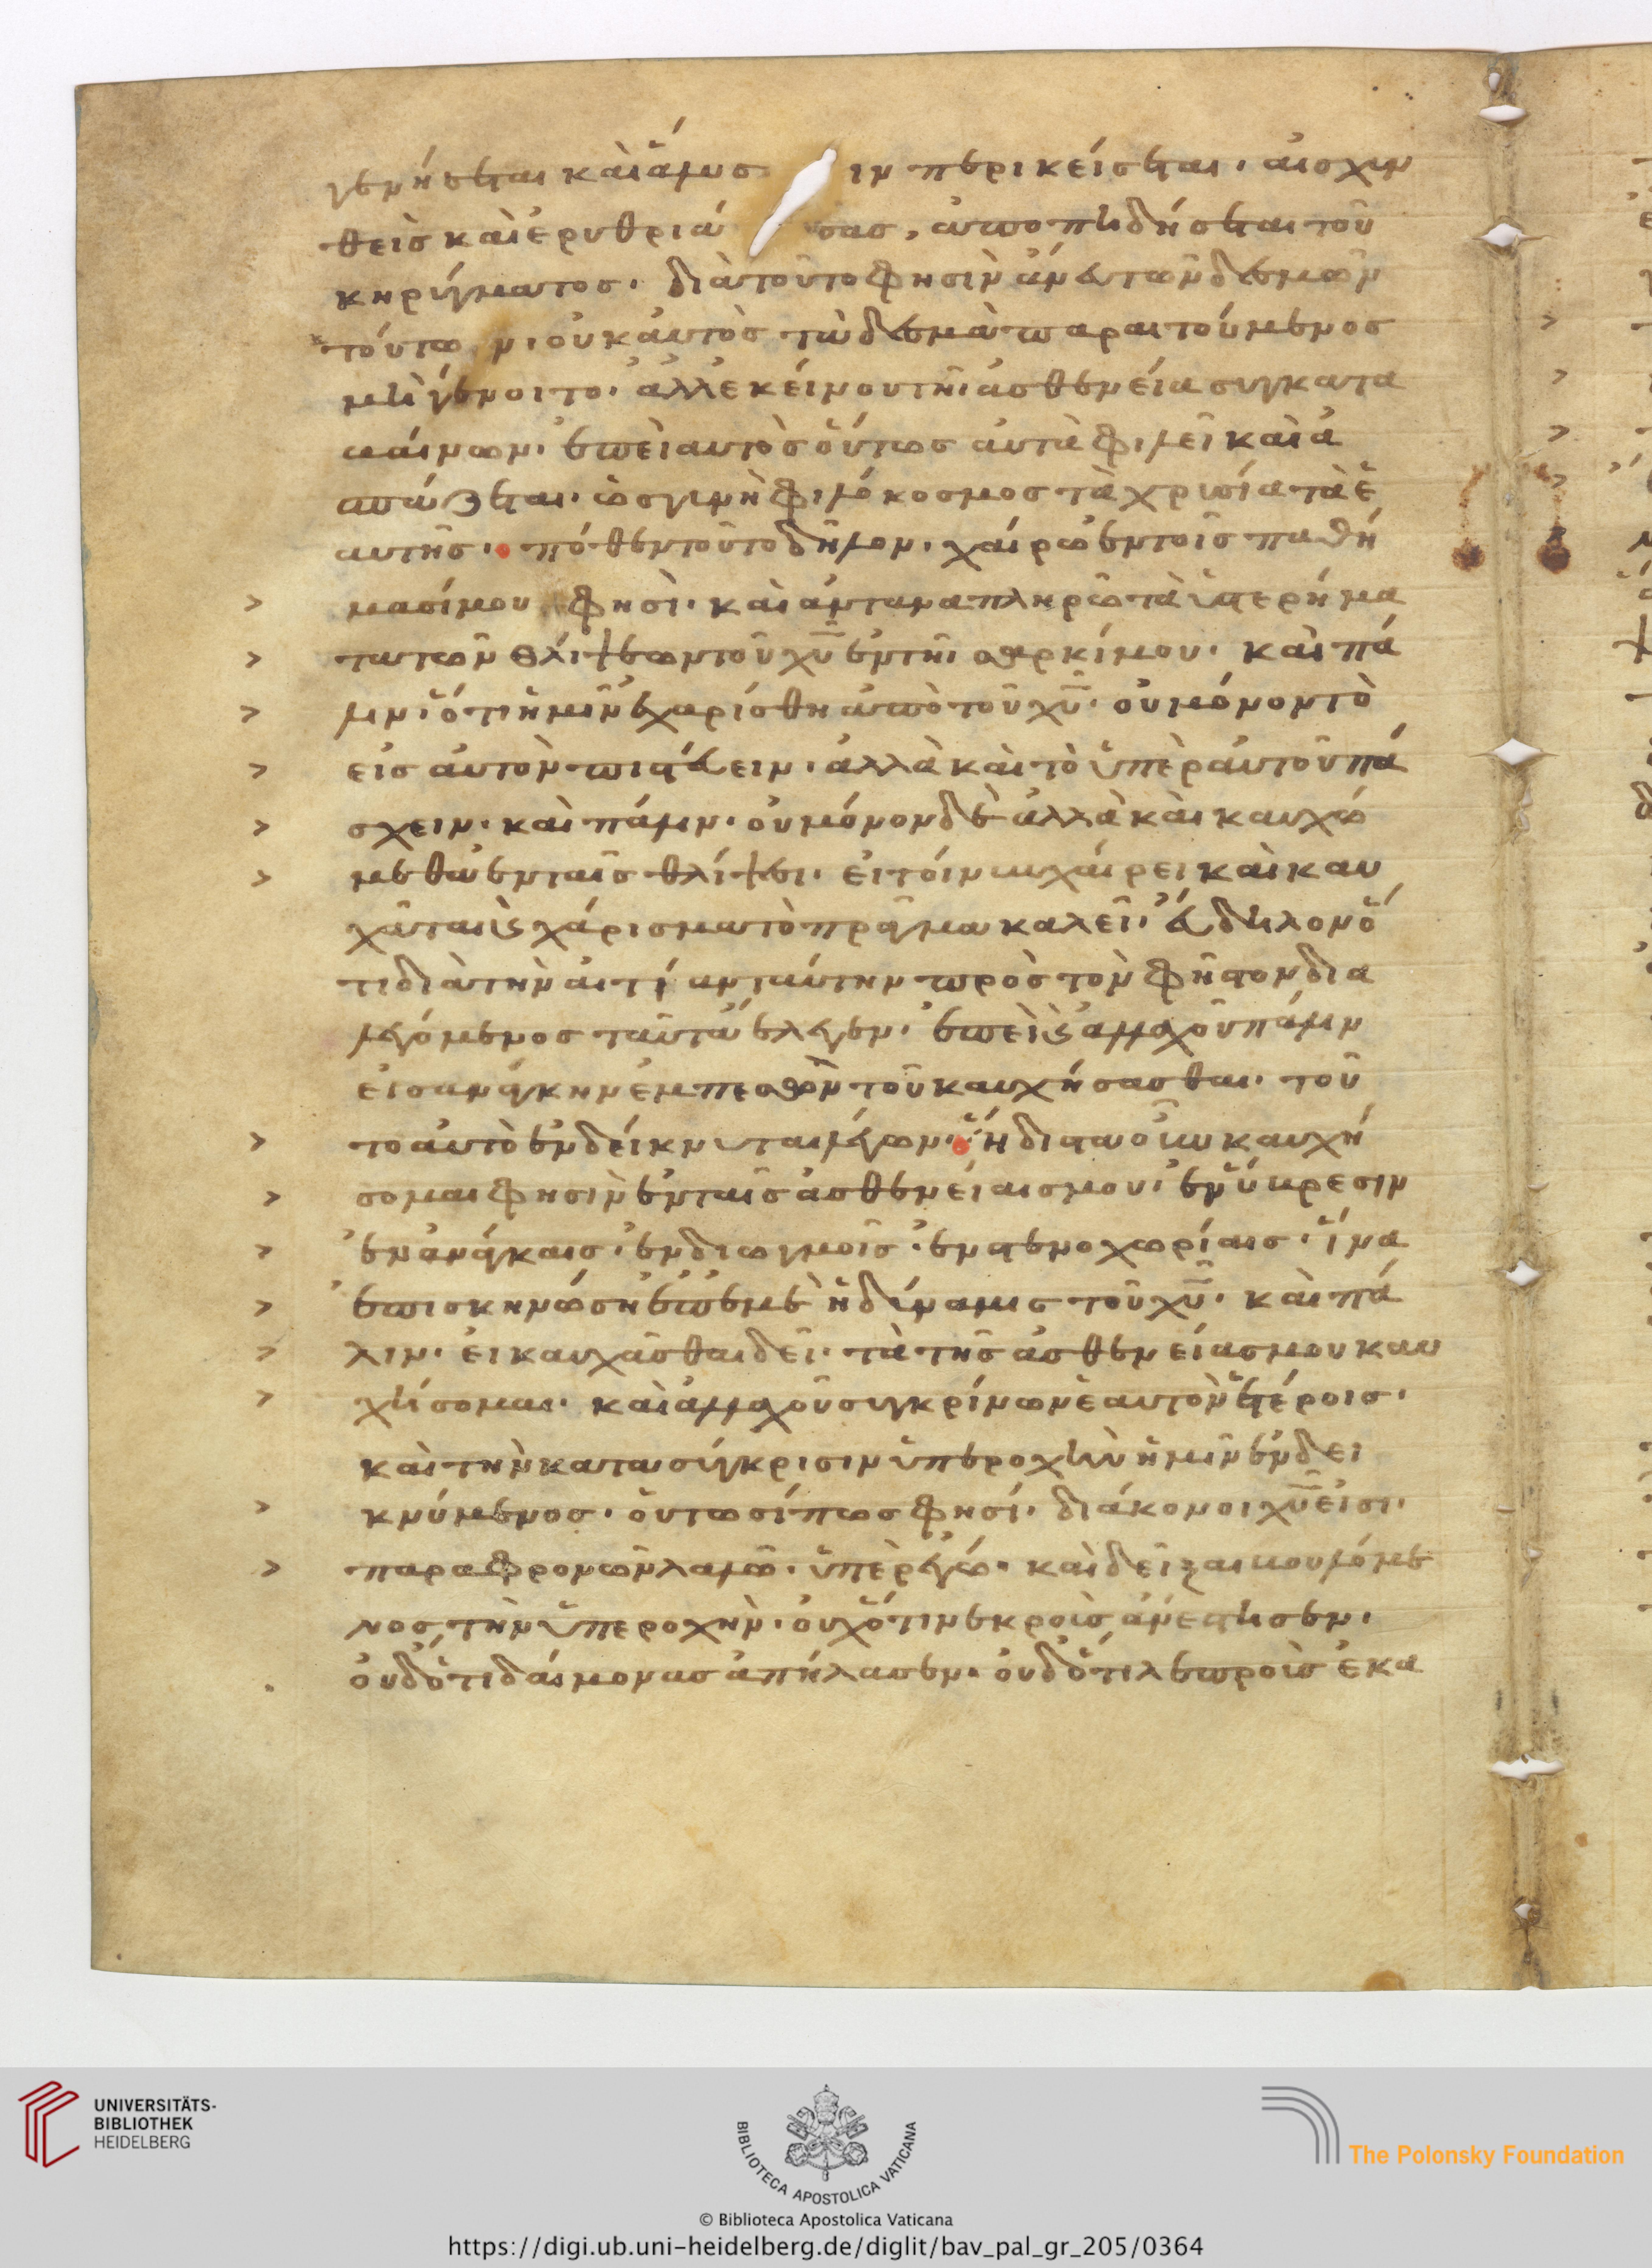 γενήσεται καὶ ἄλυσ ιν περικείσεται· αἰσχυν
θεὶς καὶ ἐρυθριά σας, ἀποπηδήσεται τοῦ
κηρύγματος· διὰ τοῦτο φησὶν ἄνευ τῶν δεσμῶν
τούτων· οὐκ αὐτὸς τὰ δεσμὰ παραιτούμενος
μὴ γένοιτο· ἀλλ' ἐκείνου τῆι ἀσθενεία συγκατα
βαίνων· ἐπεὶ αυτὸς ὄντως αὐτὰ φιλεῖ καὶ ἀ
σπάζεται· ὡς γυνὴ φιλόκοσμος τὰ χρυσία τὰ ἑ
αυτῆς· πόθεν τοῦτο δῆλον· χαίρω ἐν τοῖς παθή
μασί μου φησὶ· καὶ ἀνταναπληρῶ τὰ ὑστερήμα
τα τῶν θλίψεων τοῦ χῦ ἐν τῆι σαρκί μου· καὶ πά
λιν· ὅτι ἡμῖν ἐχαρίσθη ἀπὸ τοῦ χῦ· οὐ μόνον τὸ
εἰς αὐτὸν πιστεύειν· ἀλλὰ καὶ τὸ ὑπὲρ αὐτοῦ πά
σχειν· καὶ πάλιν· οὐ μόνον δὲ ἀλλὰ καὶ καυχώ
μεθα ἐν ταῖς θλίψεσι· εἰ τοίνυν χαίρει καὶ καυ
χᾶται καὶ χάρισμα τὸ πρᾶγμα καλεῖ· εὔδηλον ὅ
τι διὰ τὴν αἰτίαν ταύτην πρὸς τὸν φῆστον δια
λεγόμενος ταῦτα ἔλεγεν· ἐπεὶ καὶ ἀλλαχοῦ πάλιν
εἰς ἀνάγκην ἐμπεσὼν τοῦ καυχήσασθαι· τοῦ
το αὐτὸ ἐνδείκνυται λέγων· ἥδιστα οὖν καυχή
σομαι φησὶν ἐν ταῖς ἀσθενείαις μου· ἐν ὕβρεσιν
ἐν ἀνάγκαις· ἐν διωγμοῖς· ἐν στενοχωρίαις· ἵνα
ἐπισκηνώση ἐπ' ἐμὲ ἡ δύναμις τοῦ χῦ· καὶ πά
λιν· εἰ καυχᾶσθαι δεῖ· τὰ τῆς ἀσθενείας μου καυ
χήσομαι· καὶ ἀλλαχοῦ συγκρίνων ἑαυτὸν ἑτέροις·
καὶ τὴν κατὰ σύγκρισιν ὑπεροχὴν ἡμῖν ἐνδει
κνύμενος· οὑτωσί πως φησί· διάκονοι χῦ εἰσι·
παραφρονῶν λαλῶ· ὑπὲρ ἐγώ· καὶ δεῖξαι βουλόμε
νος τὴν ὑπεροχὴν· οὐχ' ὅτι νεκροὺς ἀνέστησεν·
οὐδ' ὅτι δαίμονας ἀπήλασεν· οὐδ' ὅτι λεπροὺς ἐκα
UNIVERSITÄTS-
BIBLIOTHEK
HEIDELBERG
BIBLIOTECA APOSTOLICA VATICANA
The Polonsky Foundation
© Biblioteca Apostolica Vaticana
https://digi.ub.uni-heidelberg.de/diglit/bav_pal_gr_205/0364